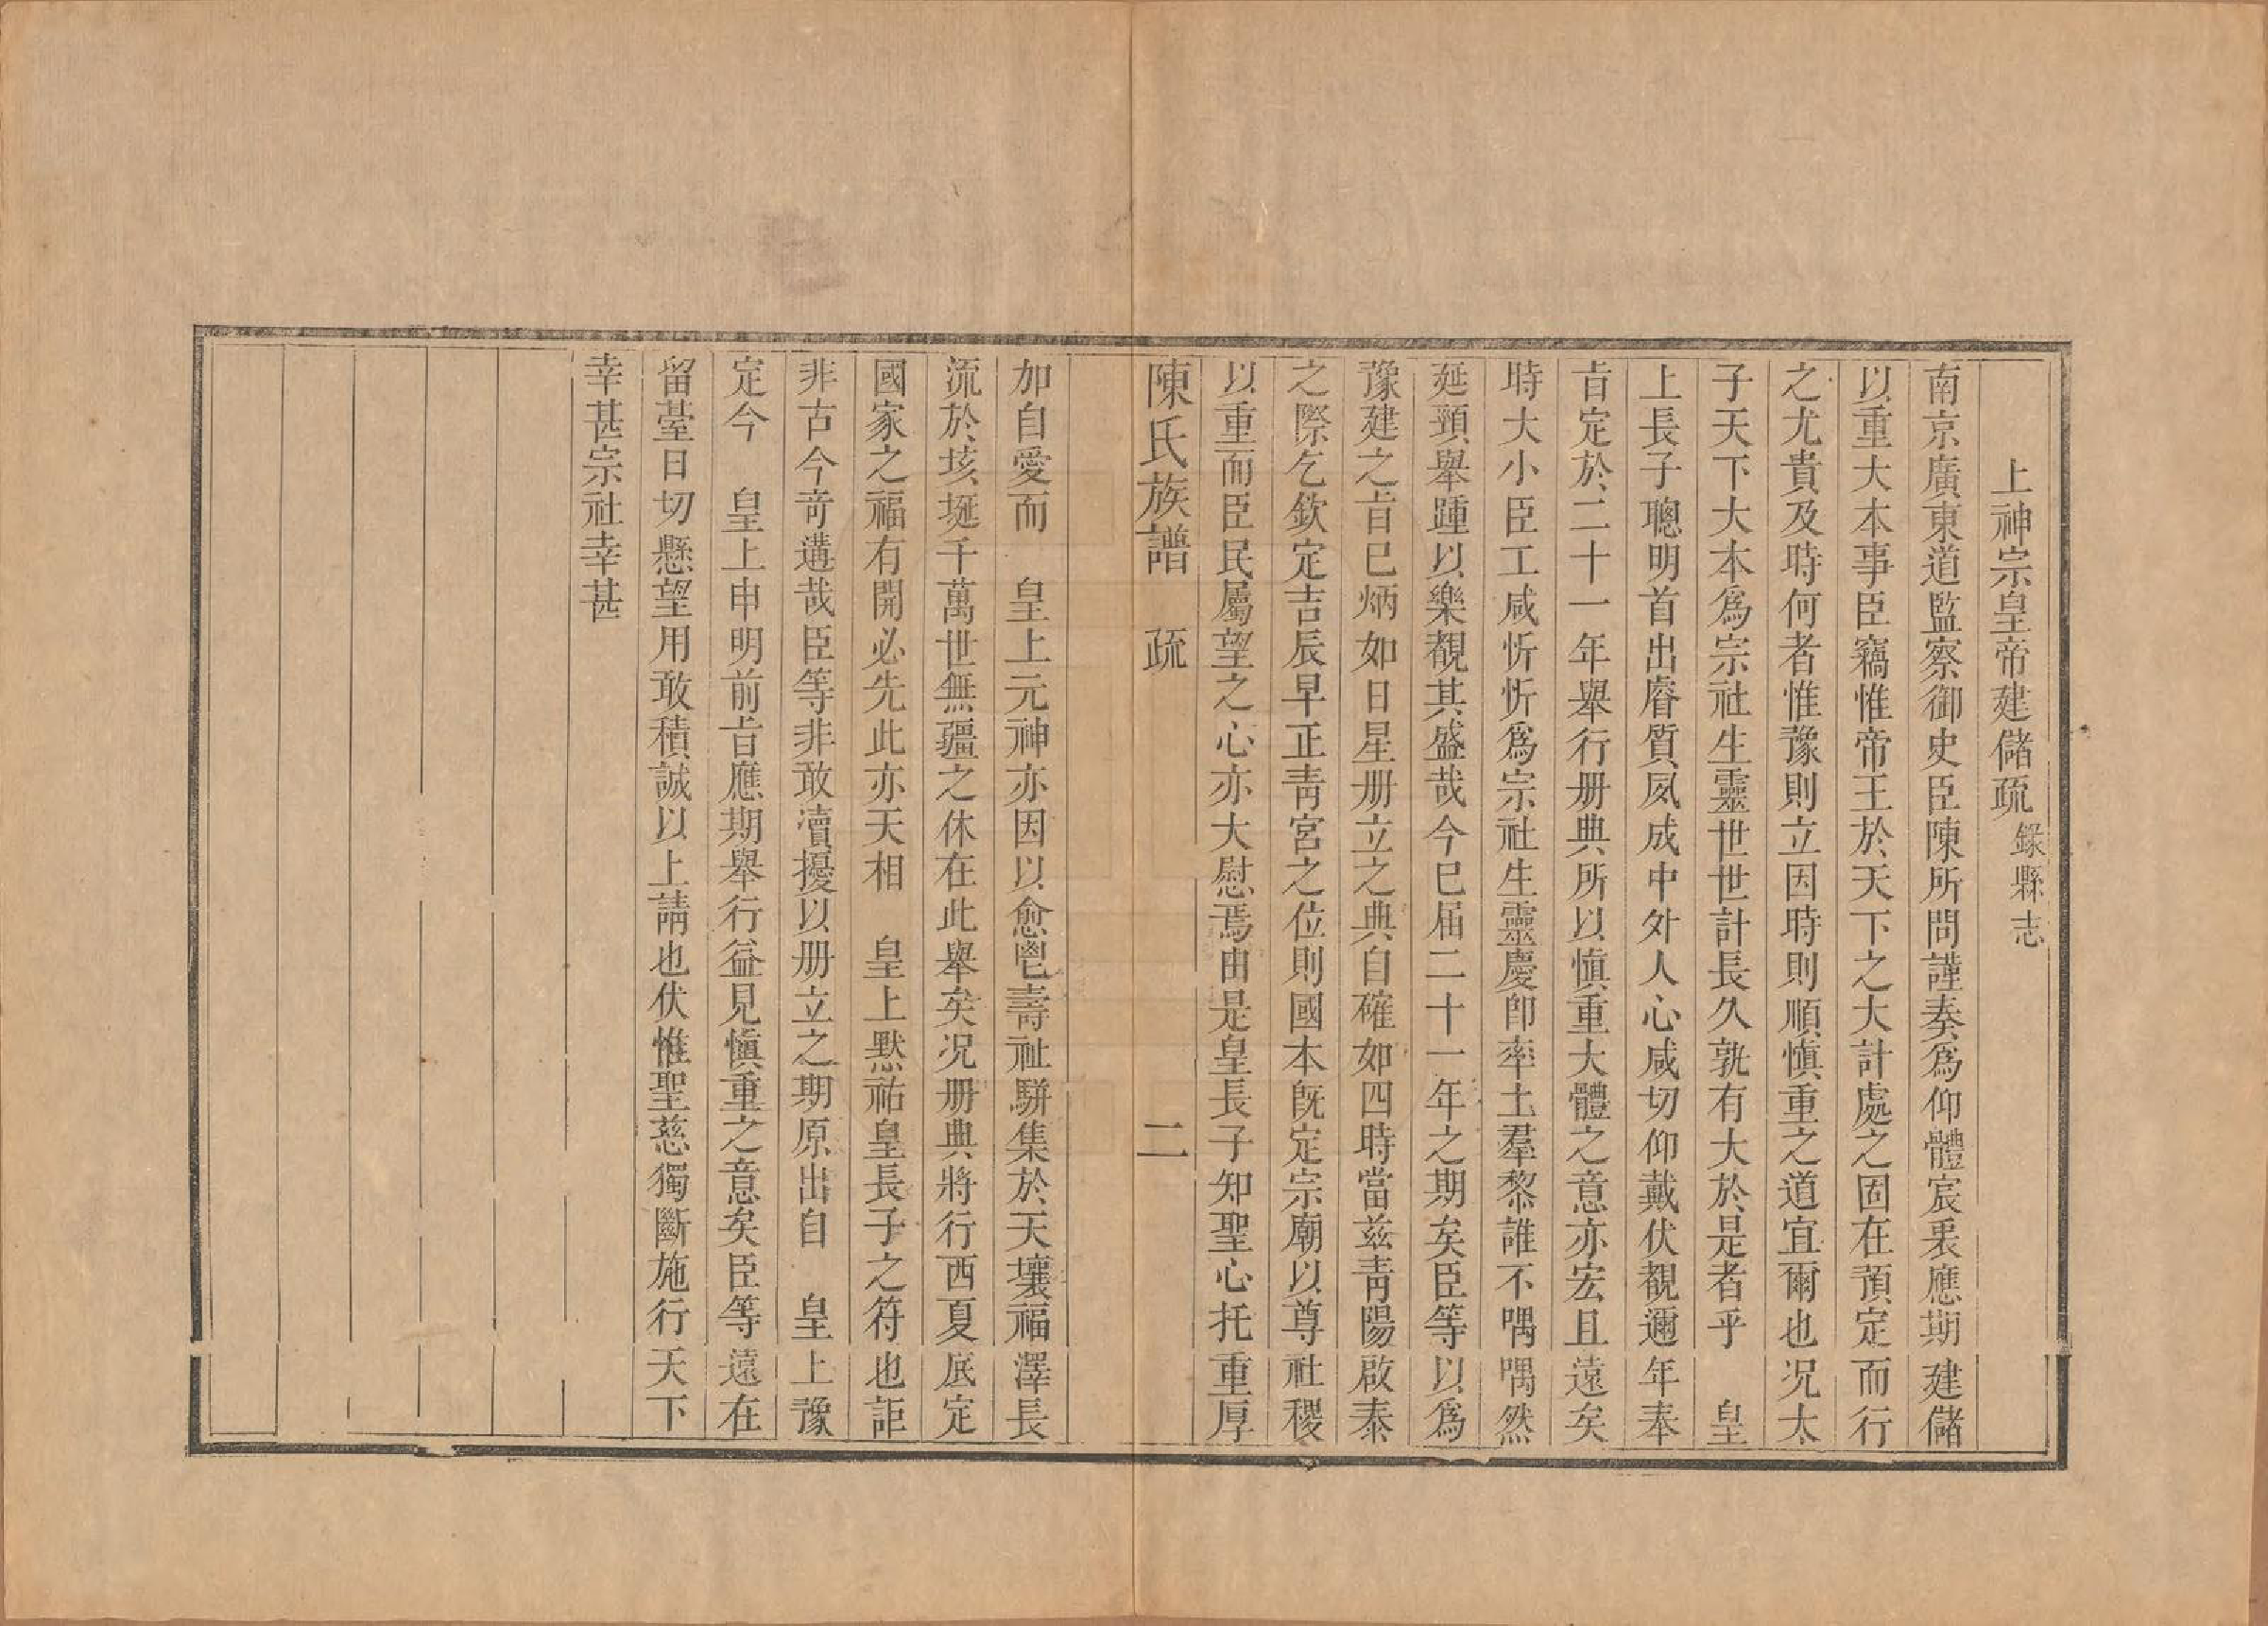 上神宗皇帝建儲疏錄縣志
南京廣東道監察御史臣陳所問謹奏爲仰體宸衷應期建儲
以重大本事臣竊惟帝王於天下之大計處之固在預定而行
之尤貴及時何者惟豫則立因時則順愼重之道宜爾也况太
子天下大本爲宗社生靈世世計長久孰有大於是者乎　皇
上長子聰明首出睿質夙成中外人心咸切仰戴伏覩邇年奉
旨定於二十一年舉行册典所以愼重大體之意亦宏且遠矣
時大小臣工咸忻忻爲宗社生靈慶卽率土羣黎誰不喁喁然
延頸舉踵以樂覩其盛哉今已届二十一年之期矣臣等以爲
豫建之旨已炳如日星册立之典自確如四時當茲靑陽啟泰
之際乞欽定吉辰早正靑宮之位則國本旣定宗廟以尊社稷
以重而臣民屬望之心亦大慰焉由是皇長子知聖心托重厚
陳氏族譜　疏　二
加自愛而　皇上元神亦因以愈鬯壽祉駢集於天壤福澤長
流於垓埏千萬世無疆之休在此舉矣况册典將行西夏底定
國家之福有開必先此亦天相　皇上默祐皇長子之符也詎
非古今奇遘哉臣等非敢瀆擾以册立之期原出自　皇上豫
定今　皇上申明前旨應期舉行益見愼重之意矣臣等遠在
留臺日切懸望用敢積誠以上請也伏惟聖慈獨斷施行天下
幸甚宗社幸甚